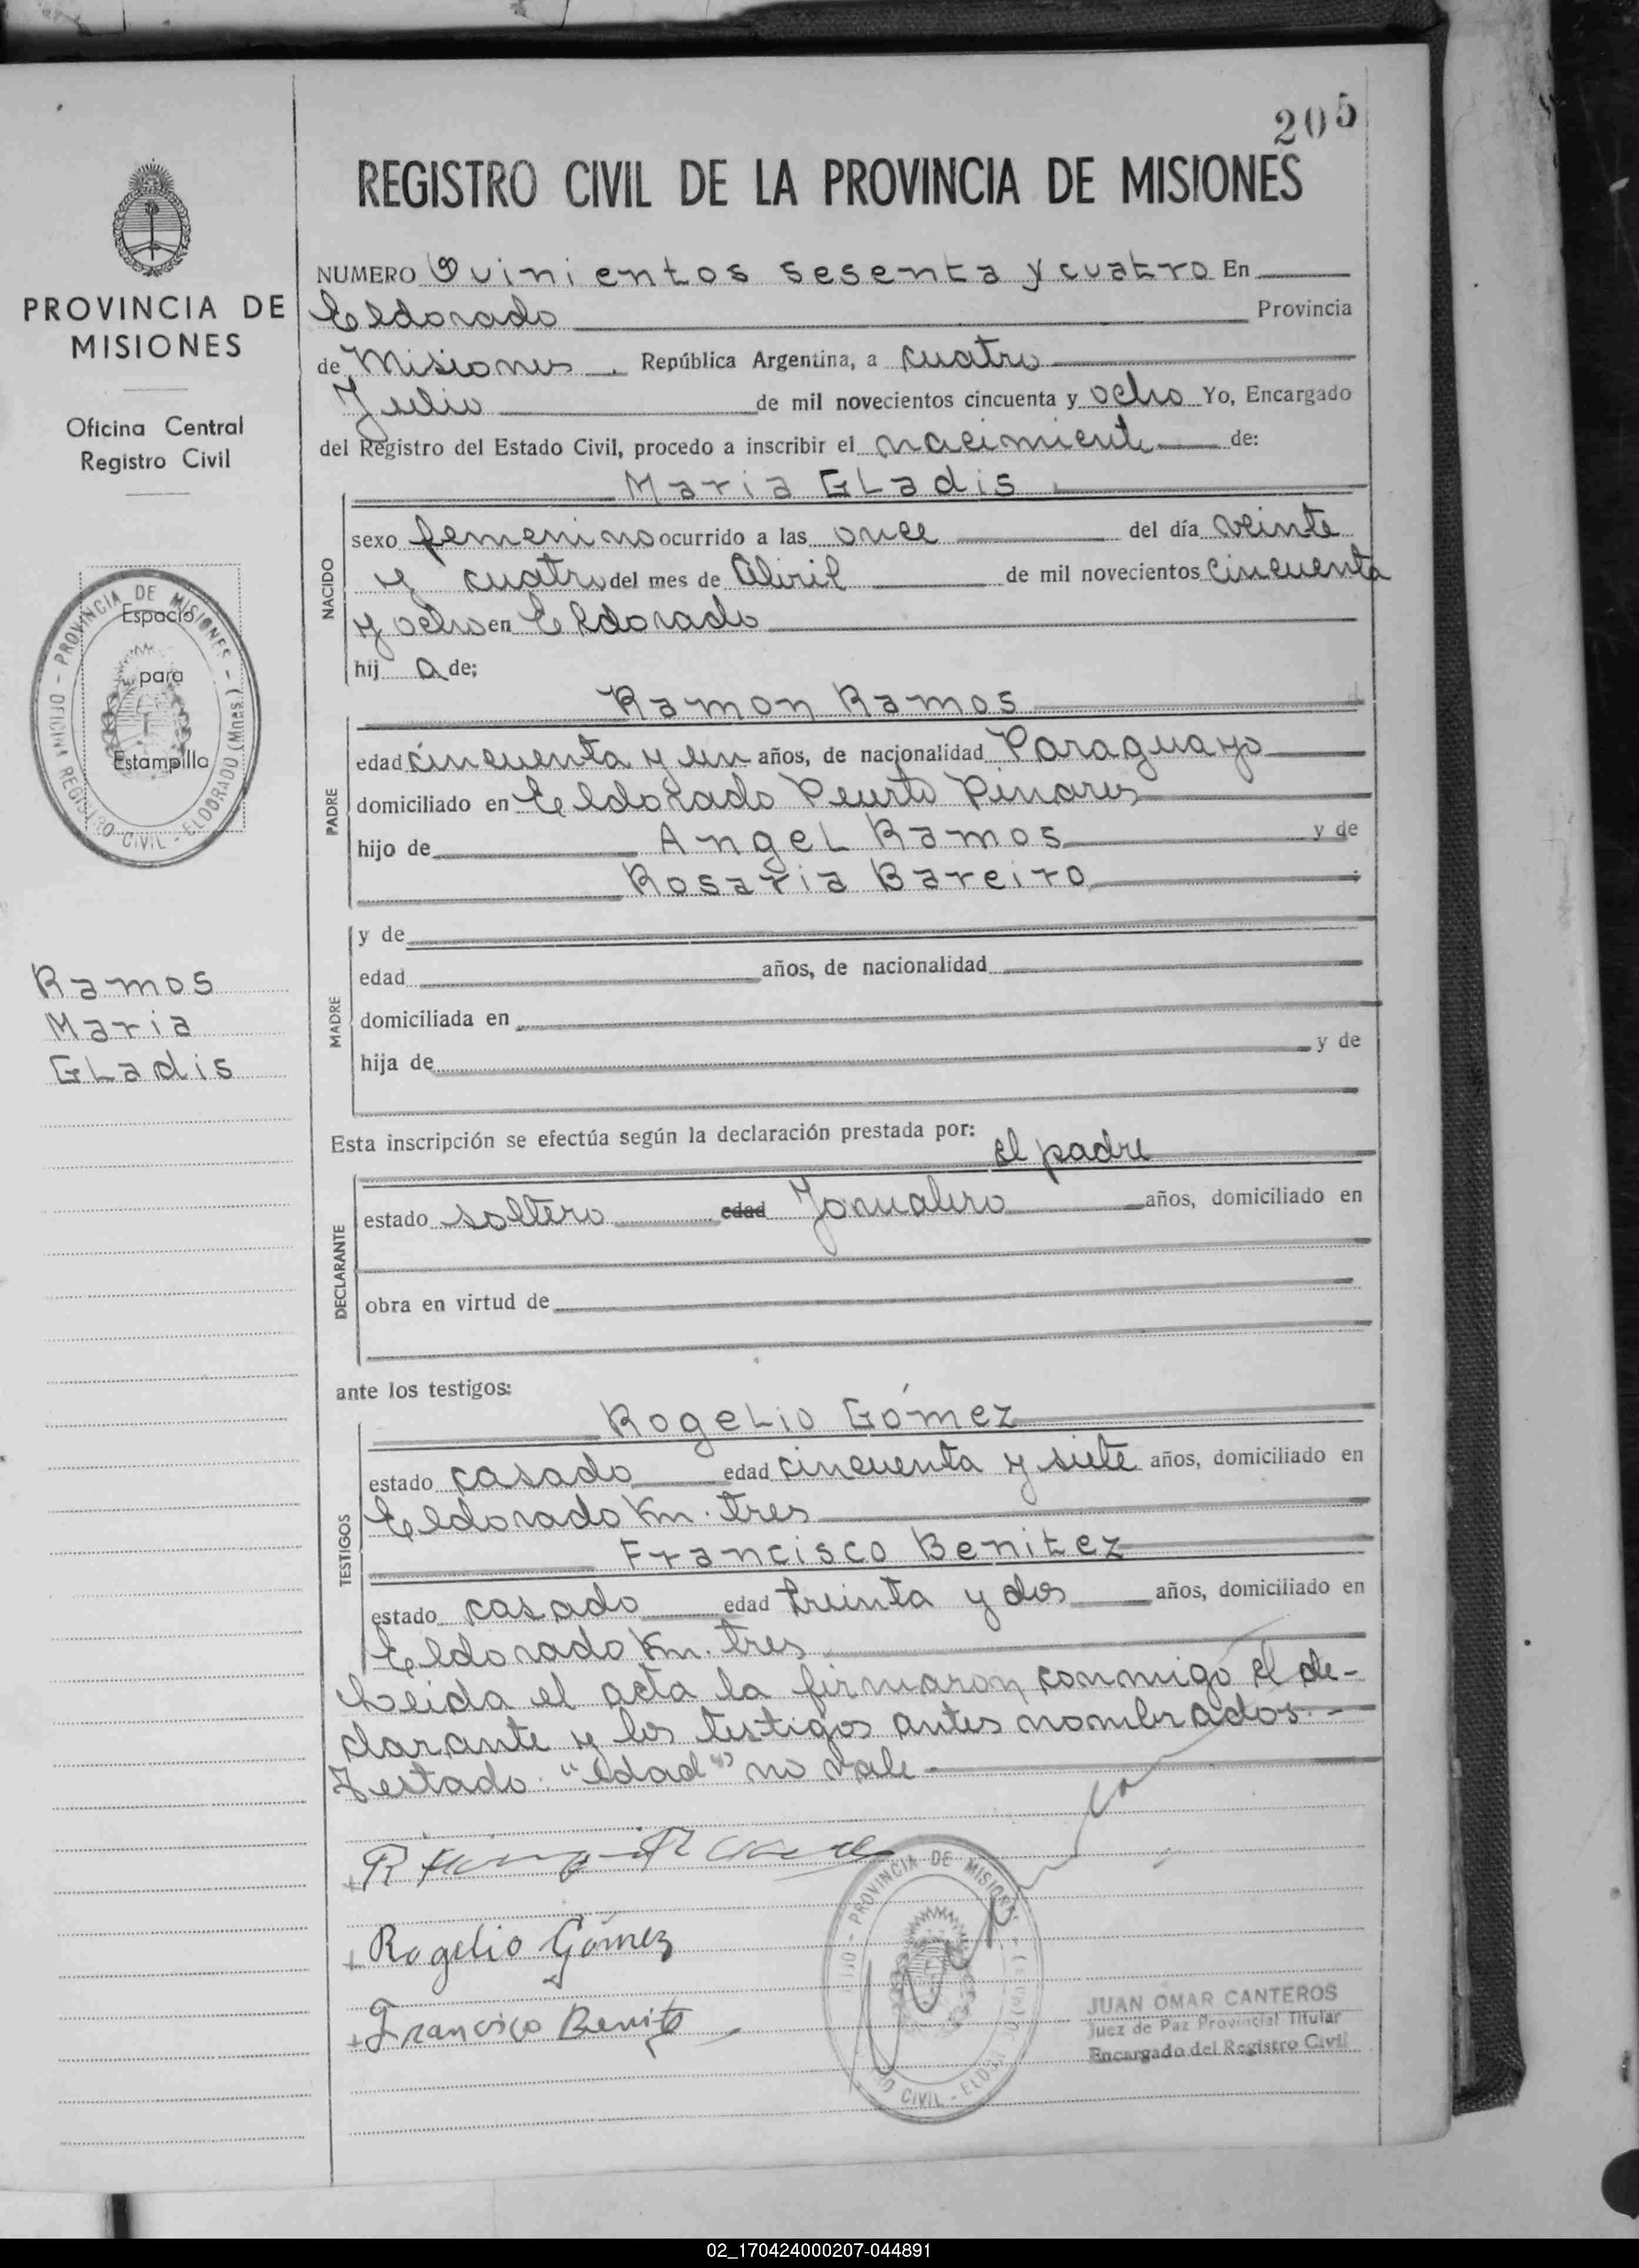 205
REGISTRO CIVIL DE LA PROVINCIA DE MISIONES
PROVINCIA DE
MISIONES
Oficina Central
Registro Civil
PROVINCIA DE MISIONES - OFICINA REGISTRO CIVIL - ELDORADO (Mnes.)
Espacio
para
Estampilla
Ramos
Maria
GLadis
NUMERO Quinientos sesenta y cuatro En
Eldorado Provincia
de Misiones . República Argentina, a cuatro
Julio de mil novecientos cincuenta y ocho Yo, Encargado
del Registro del Estado Civil, procedo a inscribir el nacimiento de:
Maria GLadis
NACIDO
sexo femenino ocurrido a las once del día veinte
y cuatro del mes de Abril de mil novecientos cincuenta
y ocho en Eldorado
hij a de;
Ramon Ramos
PADRE
edad cincuenta y un años, de nacionalidad Paraguayo
domiciliado en Eldorado Puerto Pinares
hijo de AngeL Ramos y de
Rosaria Bareiro
MADRE
y de
edad años, de nacionalidad
domiciliada en
hija de y de
Esta inscripción se efectúa según la declaración prestada por:
el padre
DECLARANTE
estado soltero edad Jornalero años, domiciliado en
obra en virtud de
ante los testigos:
RogeLio Gómez
TESTIGOS
estado casado edad cincuenta y siete años, domiciliado en
Eldorado Km. tres
Francisco Benitez
estado casado edad treinta y dos años, domiciliado en
Eldorado Km. tres
Leida el acta la firmaron conmigo el de-
clarante y los testigos antes nombrados.-
Testado: "edad" no vale
Rogelio Gómez
Francisco Benite
PROVINCIA DE MISIONES
CIVIL - ELDO
JUAN OMAR CANTEROS
Juez de Paz Provincial Titular
Encargado del Registro Civil
02_170424000207-044891